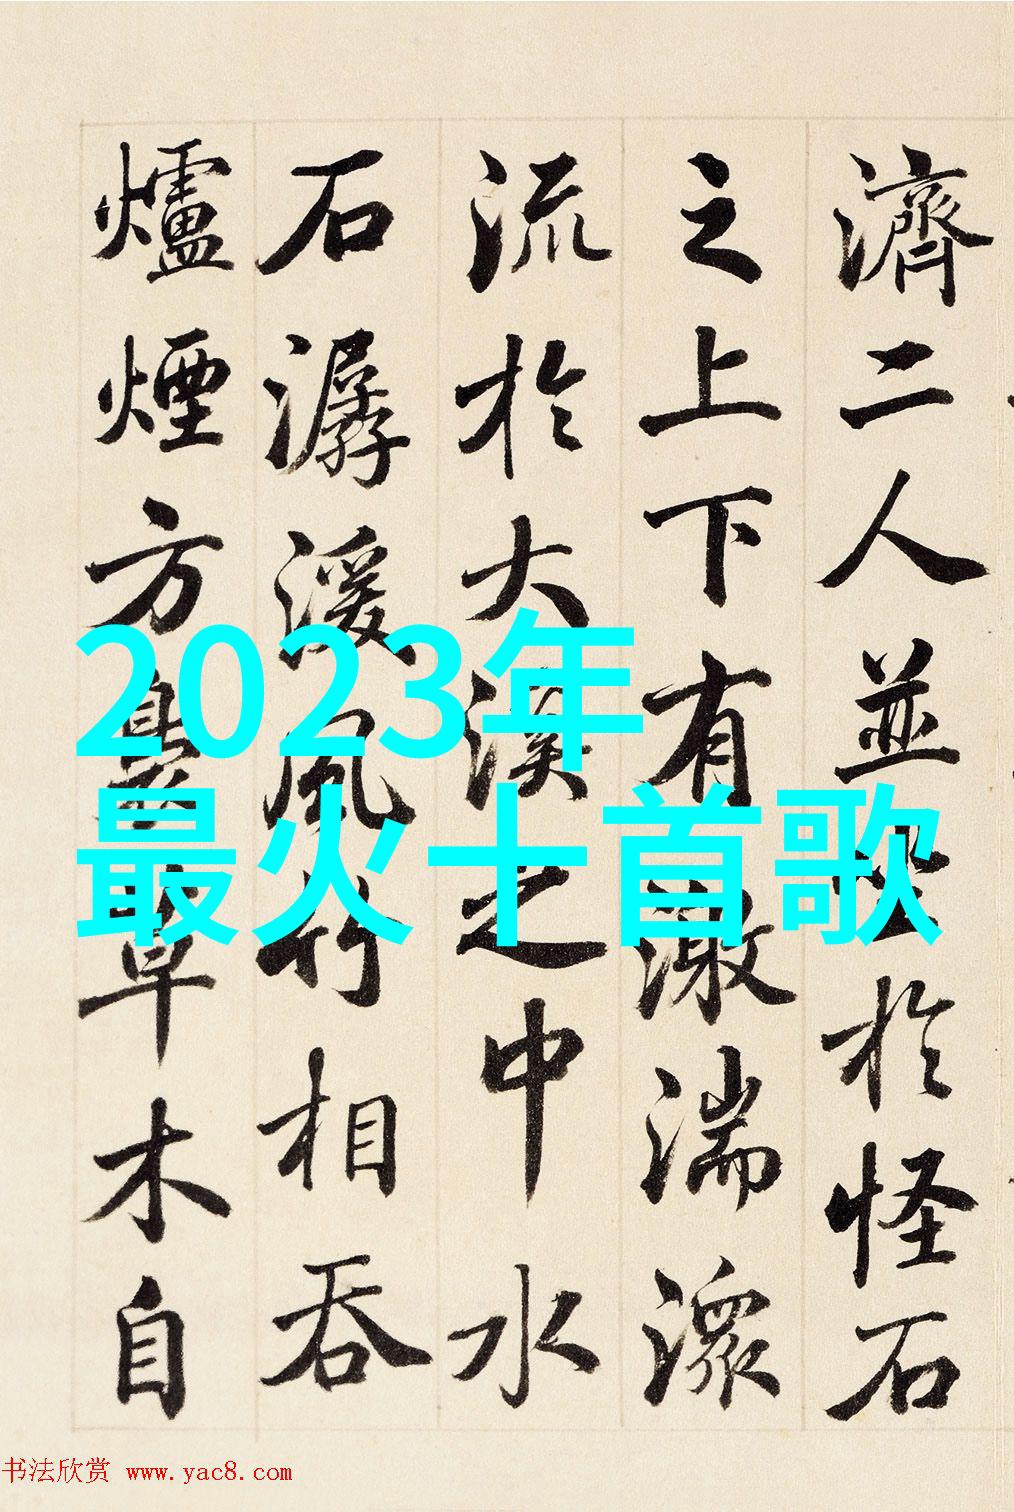 濟二人並坐於怪石
之上下有激湍潨
流於大溪之中水
石潺湲風竹相吞
爐煙方裊草木自
2023年
最火十首歌
书法欣赏 www.yac8.com